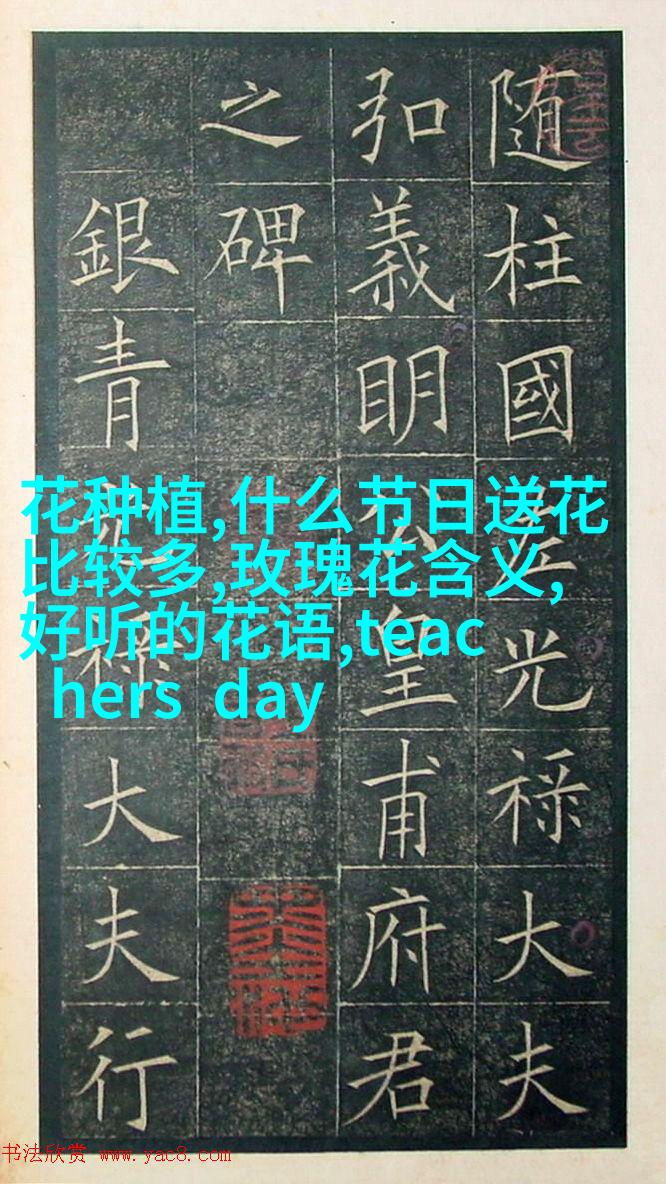 随柱國左光禄大夫
弘義明公皇甫府君
之碑
銀青光禄大夫行
花种植,什么节日送花
比较多,玫瑰花含义,
好听的花语,teac
hers day
书法欣赏 www.yac8.com